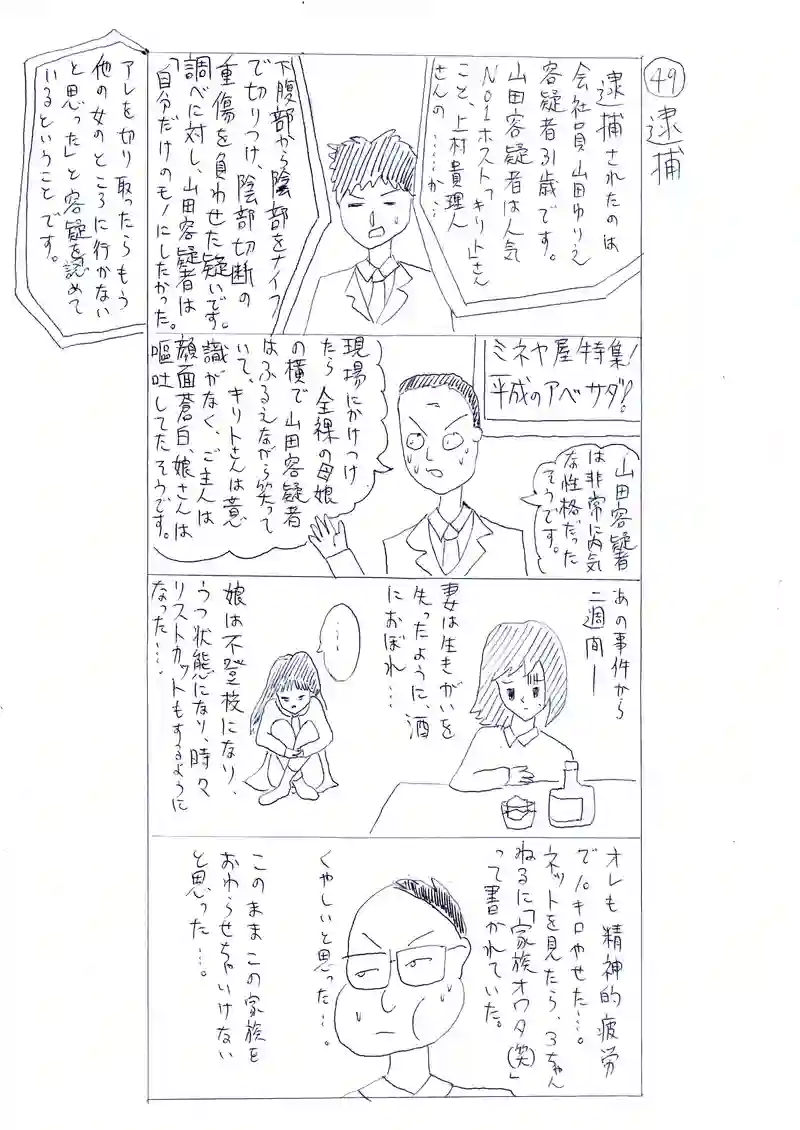 ㊾逮捕
逮捕されたのは
会社員山田ゆりえ
容疑者31歳です。
山田容疑者は人気
No1ホスト「キリト」さん
こと、上村貴理人
さんの……か…
下腹部から陰部をナイフ
で切りつけ、陰部切断の
重傷を負わせた疑いです。
調べに対し、山田容疑者は
「自分だけのモノにしたかった。
アレを切り取ったらもう
他の女のところに行かない
と思った」と容疑を認めて
いるということです。
ミネヤ屋特集!
平成のアベサダ!?
山田容疑者
は非常に内気
な性格だった
そうです。
現場にかけつけ
たら全裸の母娘
の横で山田容疑者
はふるえながら笑って
いて、キリトさんは意
識がなく、ご主人は
顔面蒼白、娘さんは
嘔吐してたそうです。
あの事件から
二週間ー
妻は生きがいを
失ったように、酒
におぼれ…
……
娘は不登校になり、
うつ状態になり、時々
リストカットもするように
なった…。
オレも精神的疲労
で10キロやせた…。
ネットを見たら、3ちゃん
ねるに「家族オワタ(笑)」
って書かれていた。
くやしいと思った…。
このままこの家族を
おわらせちゃいけない
と思った…。